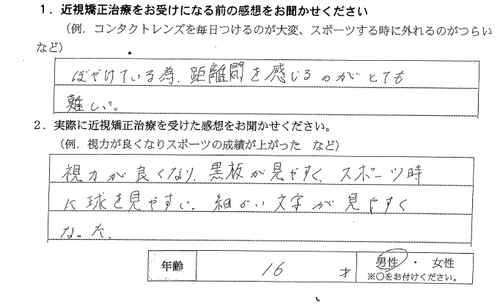 1．近視矯正治療をお受けになる前の感想をお聞かせください
（例．コンタクトレンズを毎日つけるのが大変、スポーツする時に外れるのがつらい
など）
ぼやけている為、距離間を感じるのがとても
難しい。
2．実際に近視矯正治療を受けた感想をお聞かせください。
（例．視力が良くなりスポーツの成績が上がった　など）
視力が良くなり、黒板が見やすく、スポーツ時
に球を見やすい。細かい文字が見やすく
なった。
年齢　16　才　男性・女性
※○をお付けください。